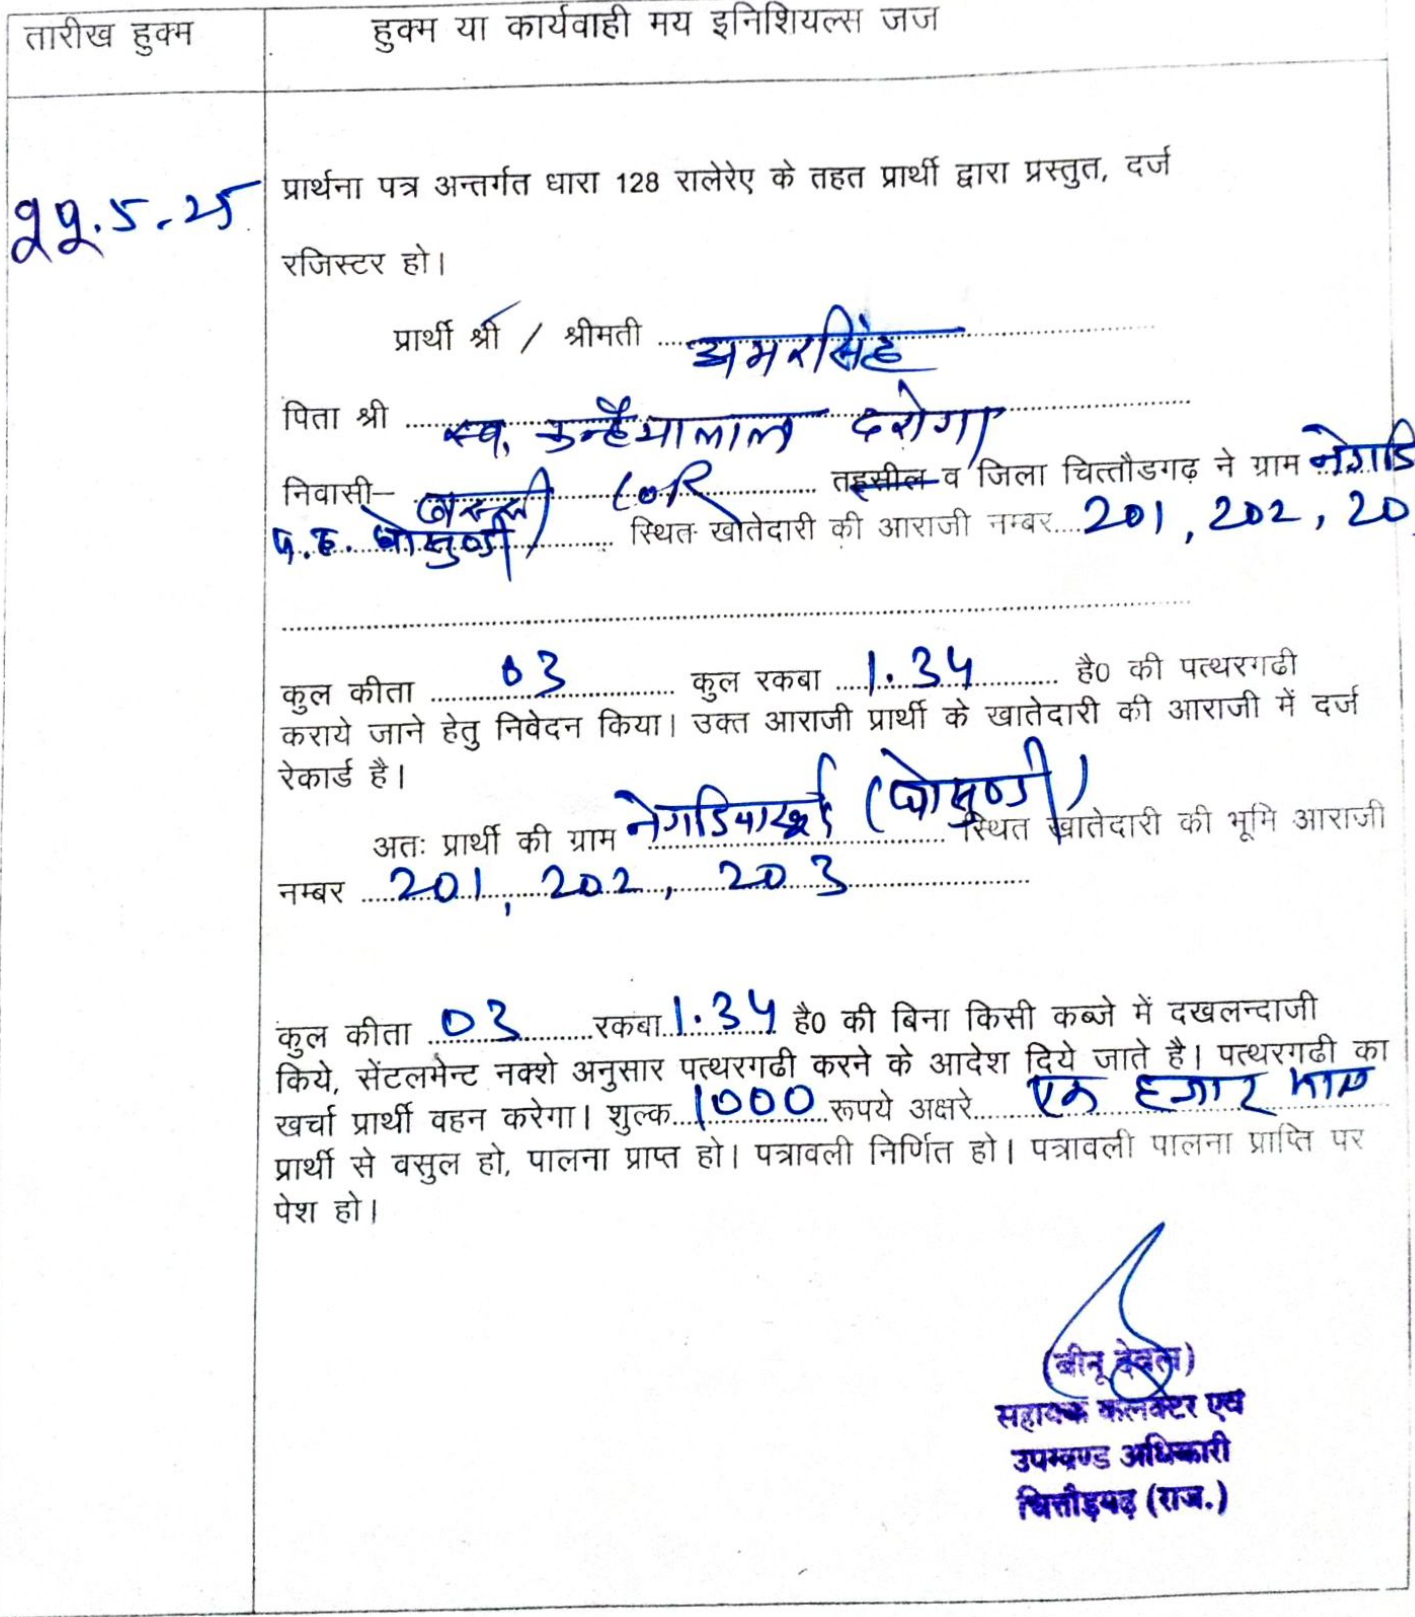 तारीख हुक्म
हुक्म या कार्यवाही मय इनिशियल्स जज
प्रार्थना पत्र अन्तर्गत धारा 128 रालेरेए के तहत प्रार्थी द्वारा प्रस्तुत, दर्ज
.5-25
रजिस्टर हो।
प्रार्थी श्री / श्रीमती अमरसिंह
पिता श्री स्व. कन्हैयालाल दरोगा
निवासी– बस्सी तहसील व जिला चित्तौडगढ़ ने ग्राम नेगडि
प.ह. घोसुण्डी स्थित खातेदारी की आराजी नम्बर 201, 202, 20
कुल कीता 03 कुल रकबा 1.34 है0 की पत्थरगढी
कराये जाने हेतु निवेदन किया। उक्त आराजी प्रार्थी के खातेदारी की आराजी में दर्ज
रेकार्ड है।
अतः प्रार्थी की ग्राम नेगडियाखुर्द (घोसुण्डी) स्थित खातेदारी की भूमि आराजी
नम्बर 201, 202, 203
कुल कीता 03 रकबा 1.34 है0 की बिना किसी कब्जे में दखलन्दाजी
किये, सेंटलमेन्ट नक्शे अनुसार पत्थरगढी करने के आदेश दिये जाते है। पत्थरगढी का
खर्चा प्रार्थी वहन करेगा। शुल्क 1000 रूपये अक्षरे एक हजार मात्र
प्रार्थी से वसुल हो, पालना प्राप्त हो। पत्रावली निर्णित हो। पत्रावली पालना प्राप्ति पर
पेश हो।
(बीनू देवल)
सहायक कलक्टर एवं
उपखण्ड अधिकारी
चित्तौड़गढ़ (राज.)